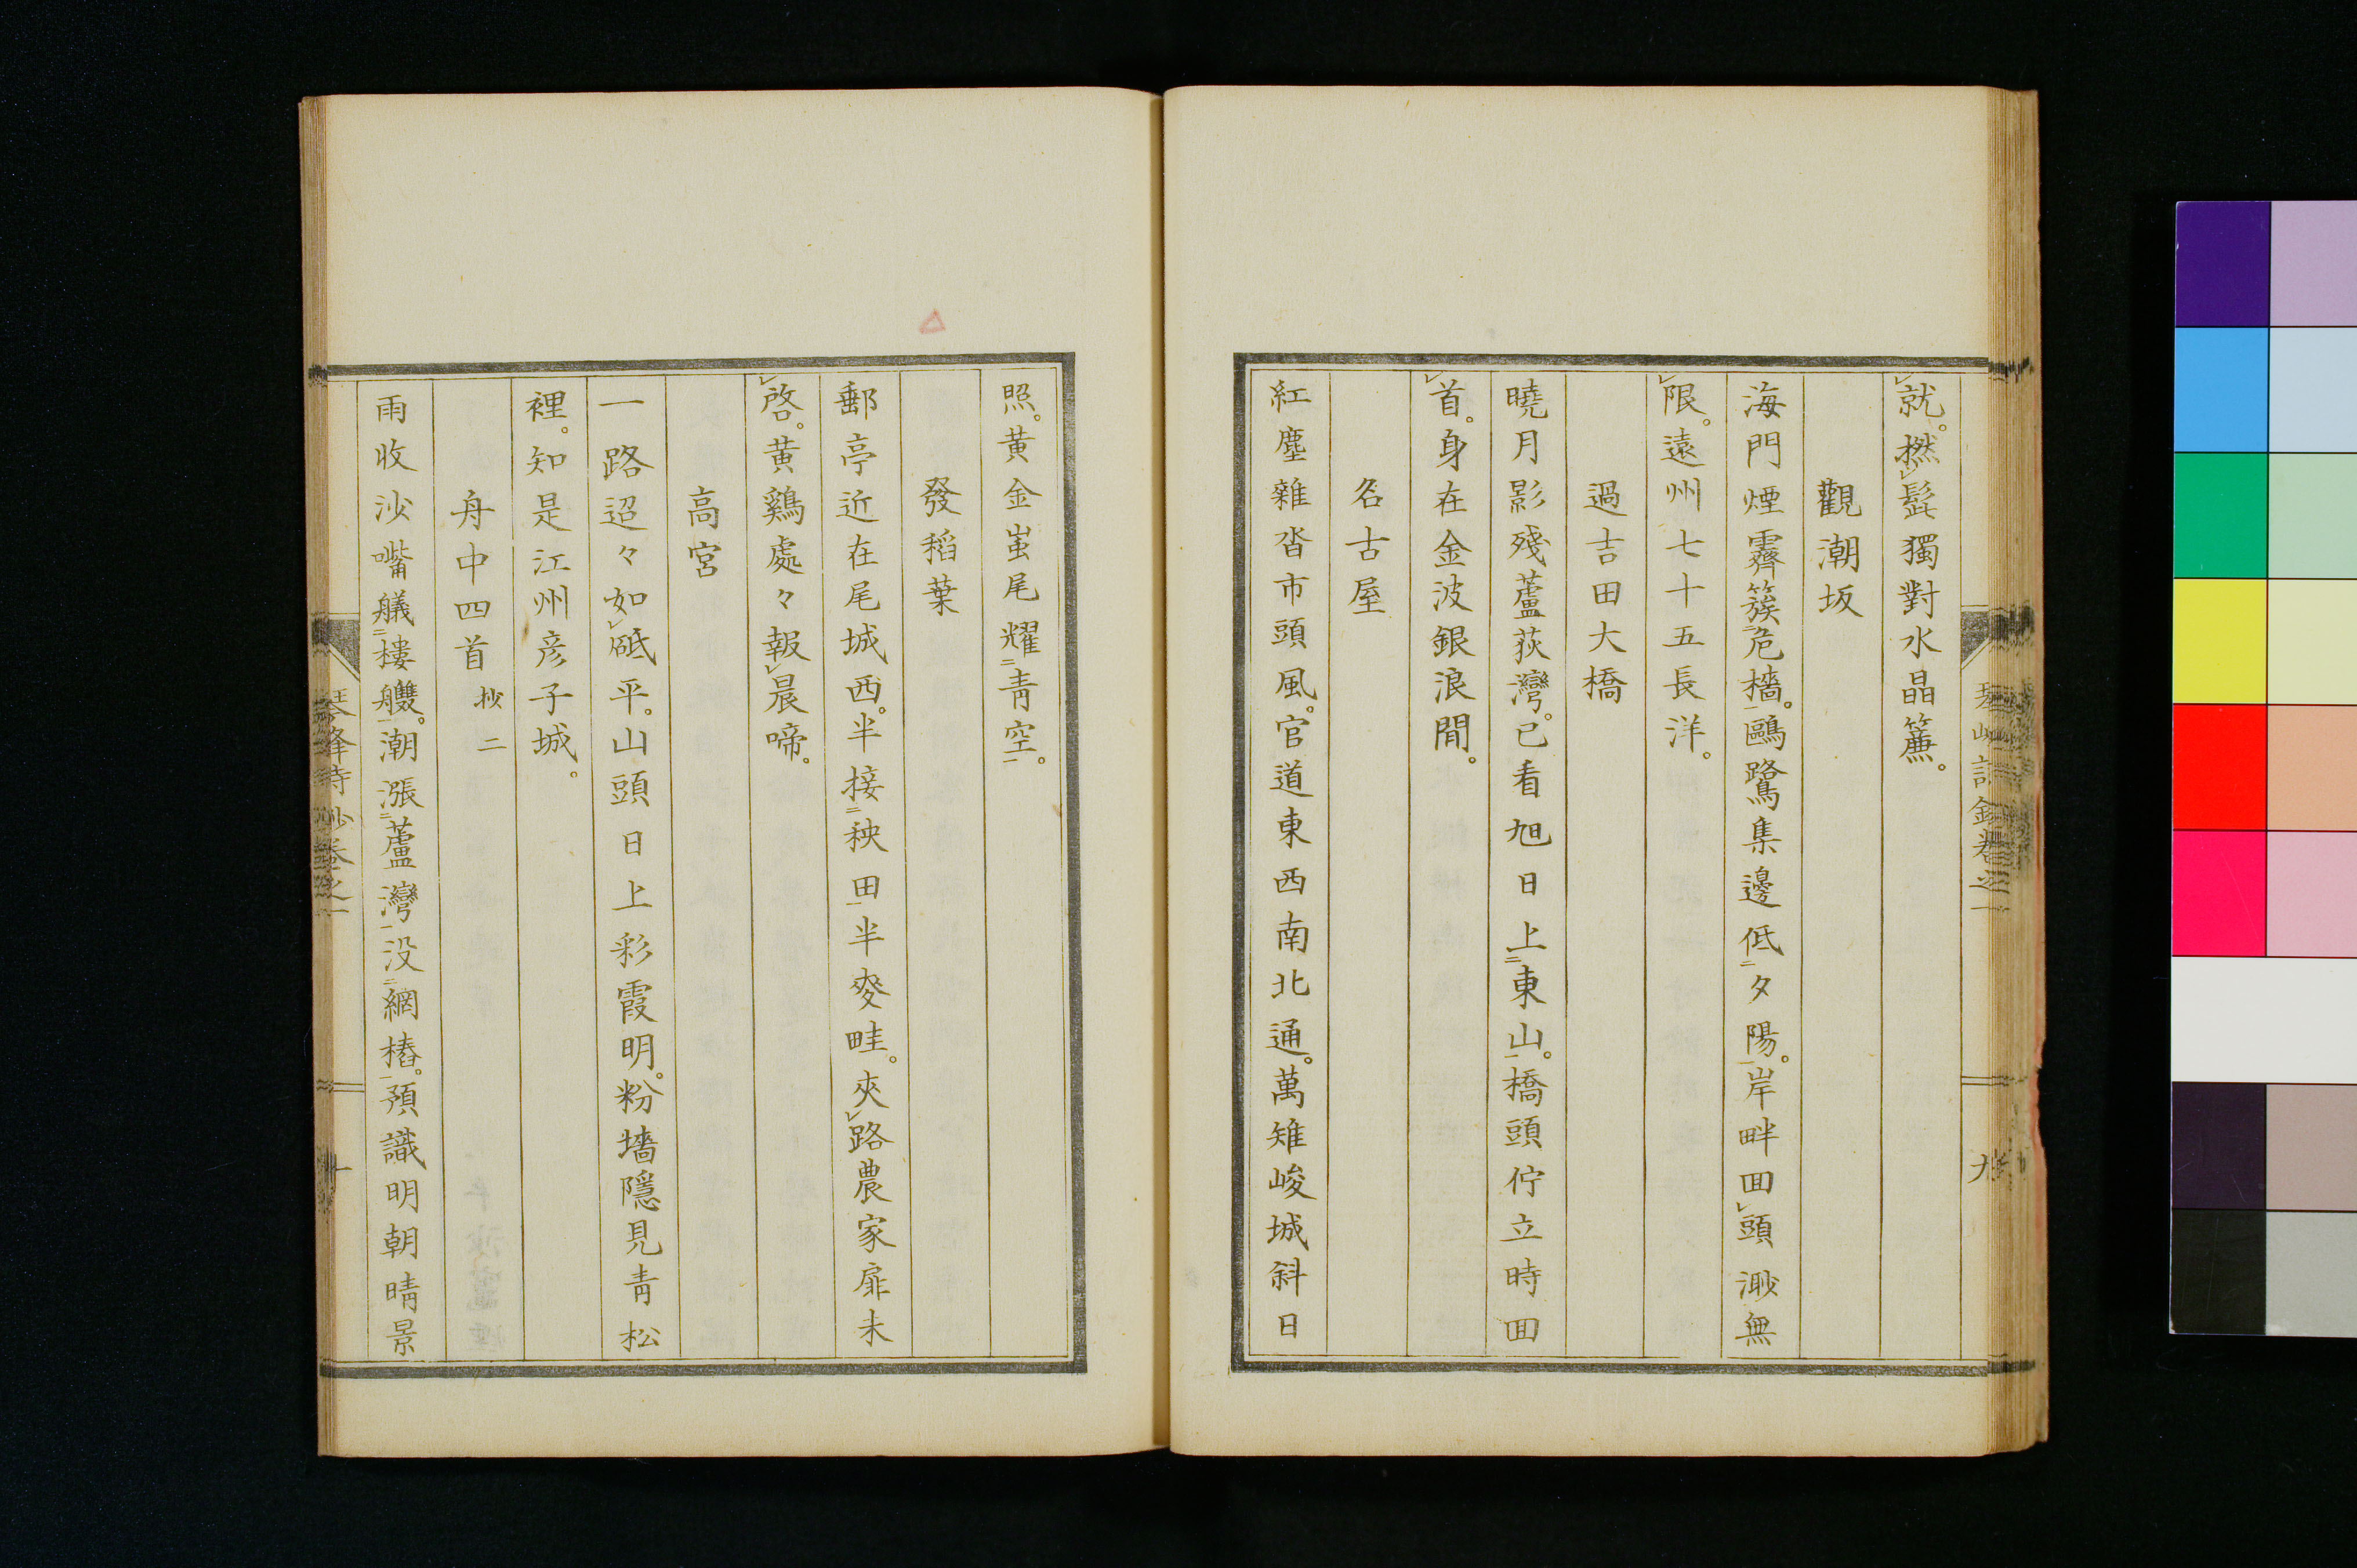 就。撚髭獨對水晶簾。
觀潮坂
海門煙霽簇危檣。鷗鷺集邊低夕陽。岸畔囬頭渺無
限。遠州七十五長洋。
過吉田大橋
曉月影殘蘆荻灣。已看旭日上東山。橋頭佇立時囬
首。身在金波銀浪間。
名古屋
紅塵雜沓市頭風。官道東西南北通。萬雉峻城斜日
照。黄金蚩尾耀青空。
發稻葉
郵亭近在尾城西。半接秧田半麥畦。夾路農家扉未
啓。黄鷄處々報晨啼。
高宮
一路迢々如砥平。山頭日上彩霞明。粉墻隱見青松
裡。知是江州彦子城。
舟中四首 抄二
雨收沙嘴艤樓艭。潮漲蘆灣没網樁。預識明朝晴景
琴峰詩鈔卷之一